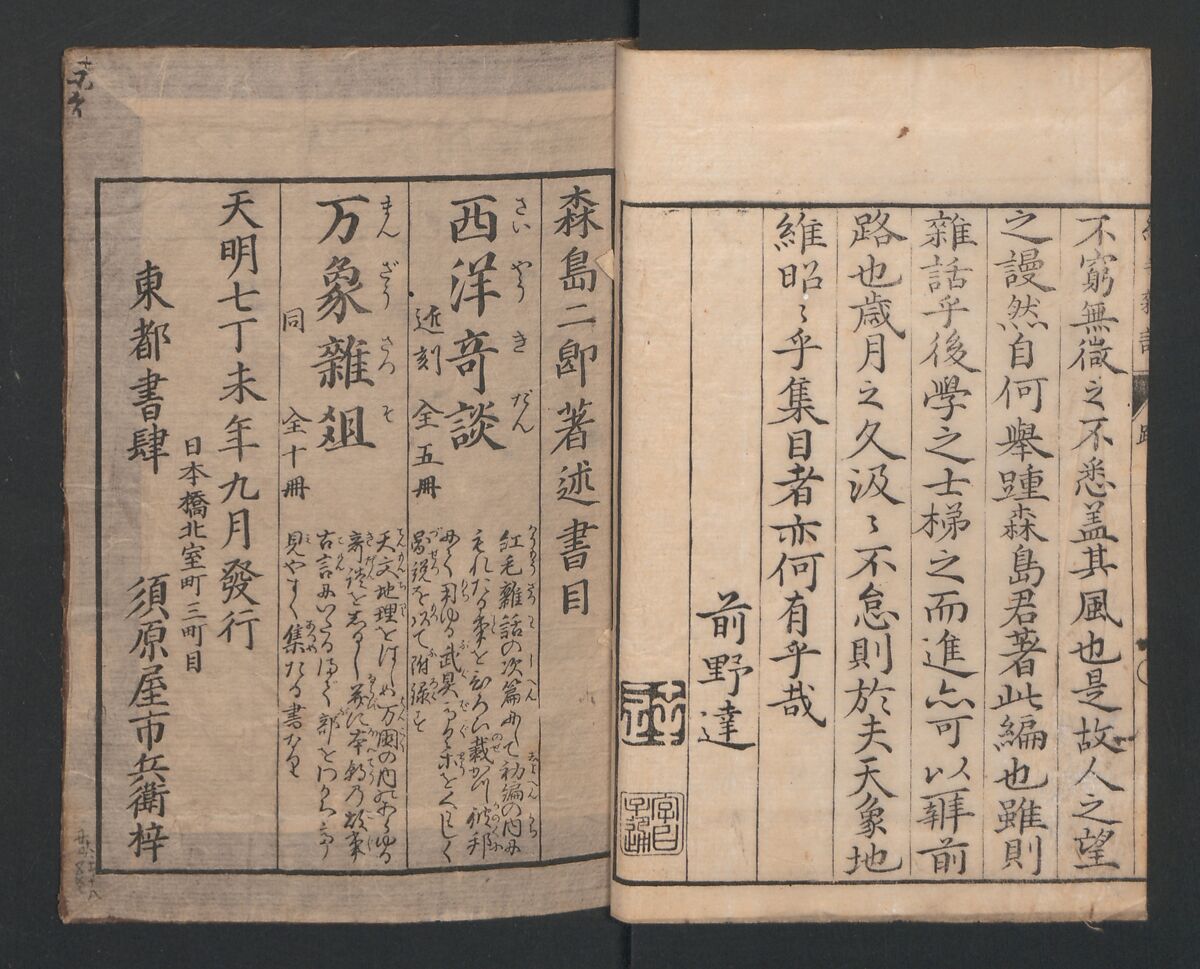 不窮無徴之不悉盖其風也是故人之望
之謾然自何舉踵森島君著此編也雖則
雜話乎後學之士梯之而進亦可以辨前
路也歳月之久汲〻不怠則於夫天象地
維昭〻乎集目者亦何有乎哉
前野達
森島二郎著述書目
西洋竒談
さいやうきだん
近刻 全五冊
紅毛雜話の次篇にして初編の内に
もれたる事をひろい載かつ彼邦
にて用ゆる武具
圖説をへて附録す
万象雜俎
まんざうざつそ
同 全十冊
天文地理をはしめ万國の内のあらゆる
奇談を志るし并に本朝乃故事
古言にいたるまで部をわかち
見やすく集たる書なり
天明七丁未年九月發行
日本橋北室町三町目
東都書肆 須原屋市兵衞梓